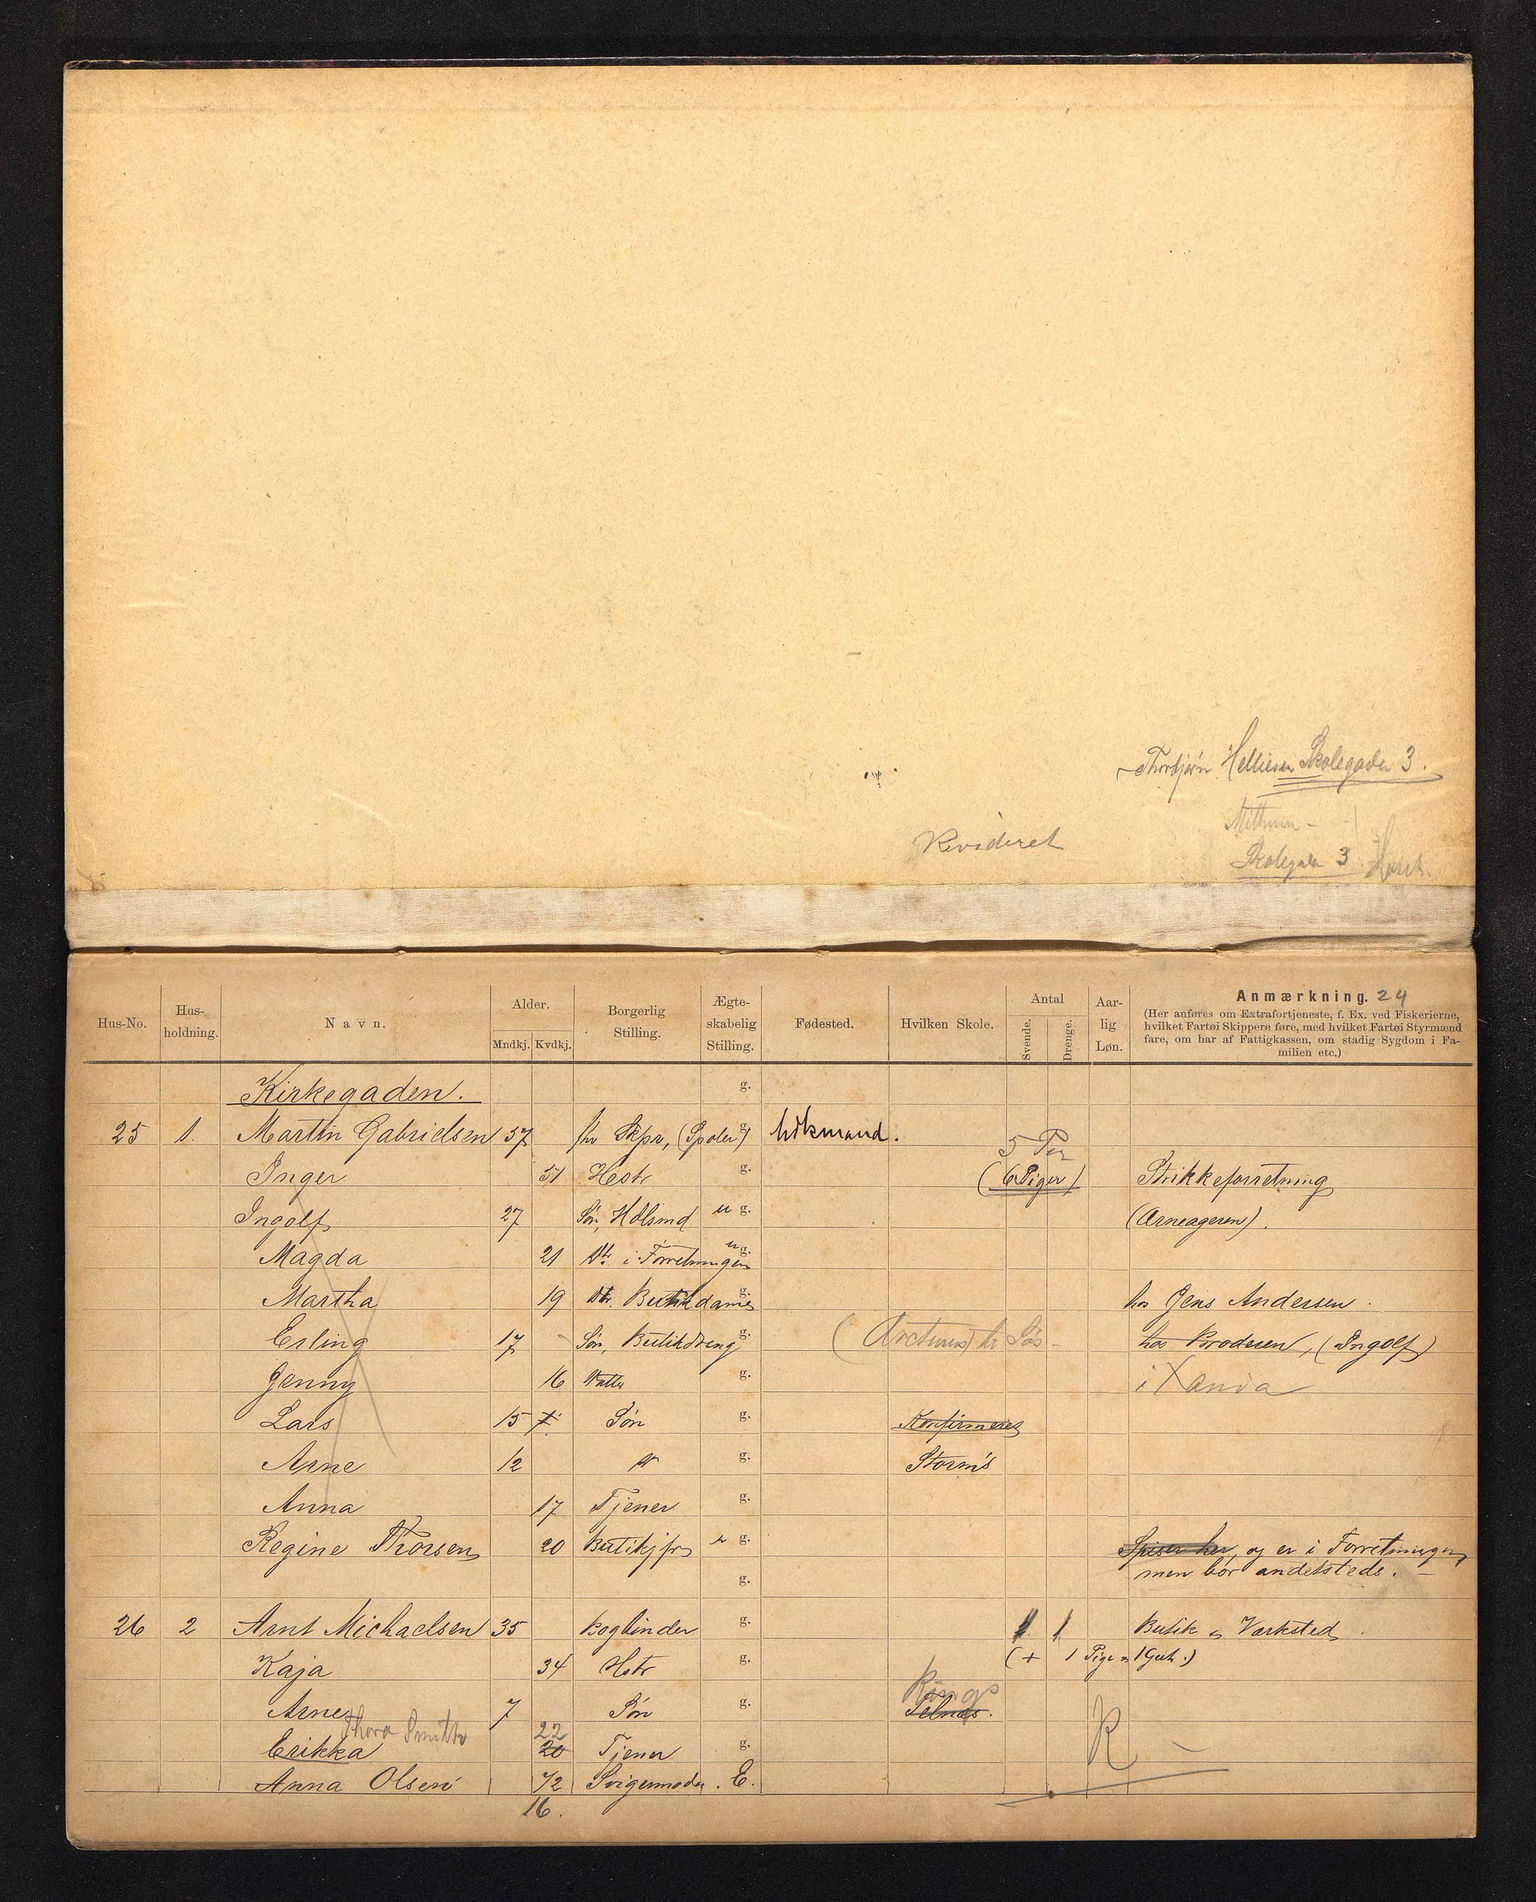 Thorbjørn Helliesen Skolegaden 3.
Skolegaden 3
Revideret
Hus-No. Hus-holdning. Navn. Alder. Mndkj. Kvdkj. Borgerlig Stilling. Ægte-skabelig Stilling. Fødested. Hvilken Skole. Antal Svende. Drenge. Aar-lig Løn. Anmærkning. 24
(Her anføres om Extrafortjeneste, f. Ex. ved Fiskerierne,
hvilket Fartøi Skippere føre, med hvilket Fartøi Styrmænd
fare, om har af Fattigkassen, om stadig Sygdom i Fa-
milien etc.)
Kirkegaden. g.
25 1. Martin Gabrielsen 57 fhv Skpr, (Spoler) g.
5 Per
Inger 51 Hstr g. (6 Piger) Strikkeforretning
Ingolf 27 Søn, Hdlsmd u g. (Arneageren).
Magda 21 Dtr. i Forretningen u g.
Martha 19 Dtr. Butikdame g. hos Jens Andersen.
Erling 17 Søn, Butikdreng g. hos Brodesen, (Ingolf)
Jenny 16 Datter g. i
Lars 15 Søn g. Konfirmeret
Arne 12 " g. Storm's
Anna 17 Tjener g.
Regine Thorsen 20 Butikjfr g. Spiser her, og er i Forretningen
g. men bor andetsteds. —
26 2 Arnt Michaelsen 35 Bogbinder g. 1 1 Butik og Værksted.
Kaja 34 Hstr g. (+ 1 Pige
Rings
Arne 7 Søn g. Selnæs.
Thora Smith 22
Erikka 20 Tjener g.
Anna Olsen 72 Svigermoder. E.
16.